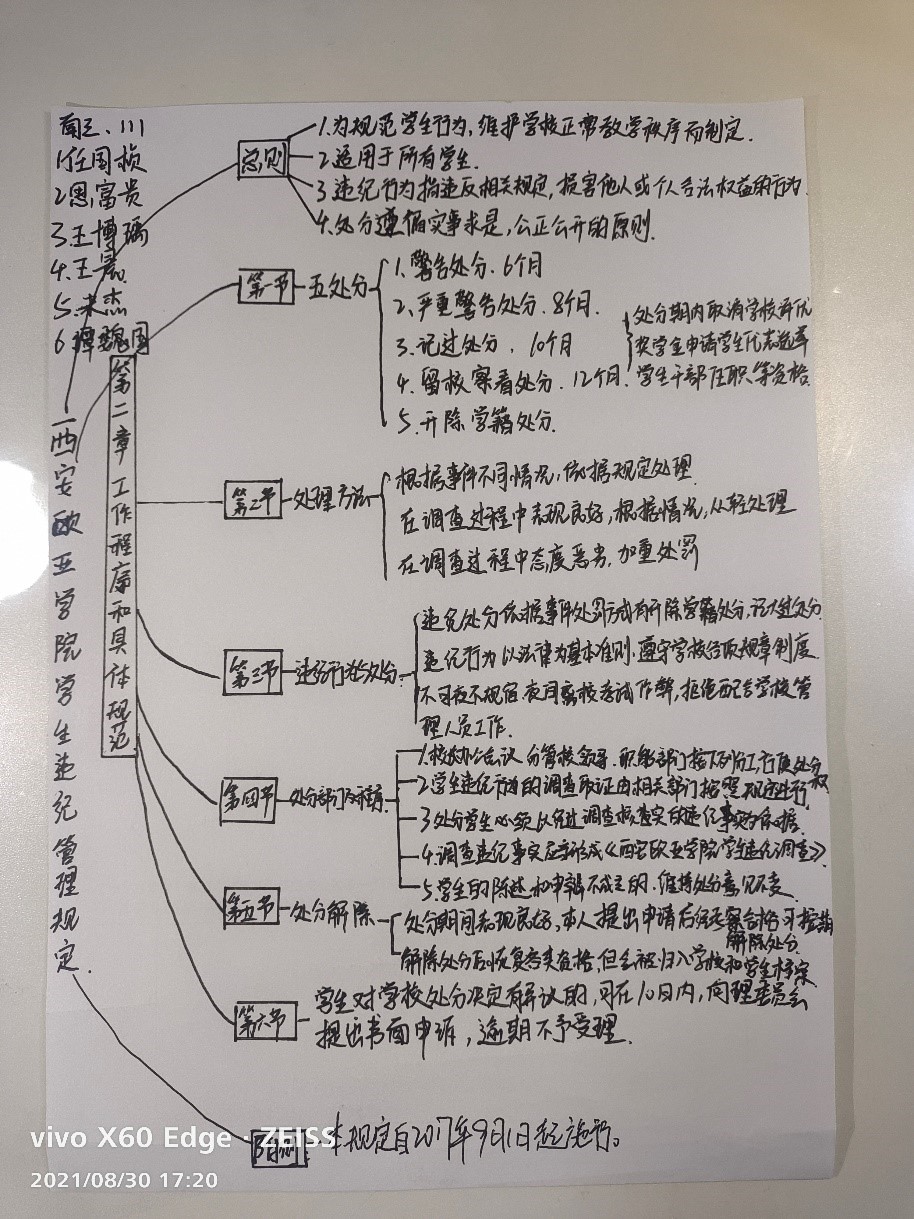 南三、111
1.任国桢
2.恩富贵
3.王博瑀
4.王震
5.米杰
6.魏国
西安欧亚学院学生违纪管理规定.
第二章工作程序和具体规范
总则
1.为规范学生行为,维护学校正常教学秩序而制定.
2.适用于所有学生.
3.违纪行为指违反相关规定,损害他人或个人合法权益的行为.
4.处分遵循实事求是,公正公开的原则.
第一节 五处分
1.警告处分.6个月
2.严重警告处分.8个月.
3.记过处分.10个月
4.留校察看处分.12个月.
5.开除学籍处分.
处分期内取消学校评优
奖学金申请学生代表选举
学生干部任职等资格
第二节 处理方法
根据事件不同情况,依据规定处理
在调查过程中表现良好,根据情况,从轻处理
在调查过程中态度恶劣,加重处罚
第三节 违纪行为处分.
违纪处分依据事件处罚方式有开除学籍处分,记过处分
违纪行为以法律为基本准则.遵守学校各项规章制度.
不可夜不归宿.夜间离校考试作弊,拒绝配合学校管
理人员工作.
第四节 处分部门及程序
1.校长办公会议 分管校领导.职能部门按下列分工行使处分权
2.学生违纪行为的调查取证由相关部门按照规定进行
3.处分学生必须以经过调查核查实的违纪事实为依据.
4.调查违纪事实应当形成《西安欧亚学院学生违纪调查》.
5.学生的陈述和申辩不成立的.维持处分意见不变
第五节 处分解除
处分期间表现良好,本人提出申请后经考察合格可按期
解除处分
解除处分后恢复各类资格,但会被归入学校和学生档案
第六节
学生对学校处分决定有解议的,可在10日内,向理委员会
提出书面申诉,逾期不予受理.
附则
本规定自2017年9月1日起施行。
vivo X60 Edge · ZEISS
2021/08/30 17:20